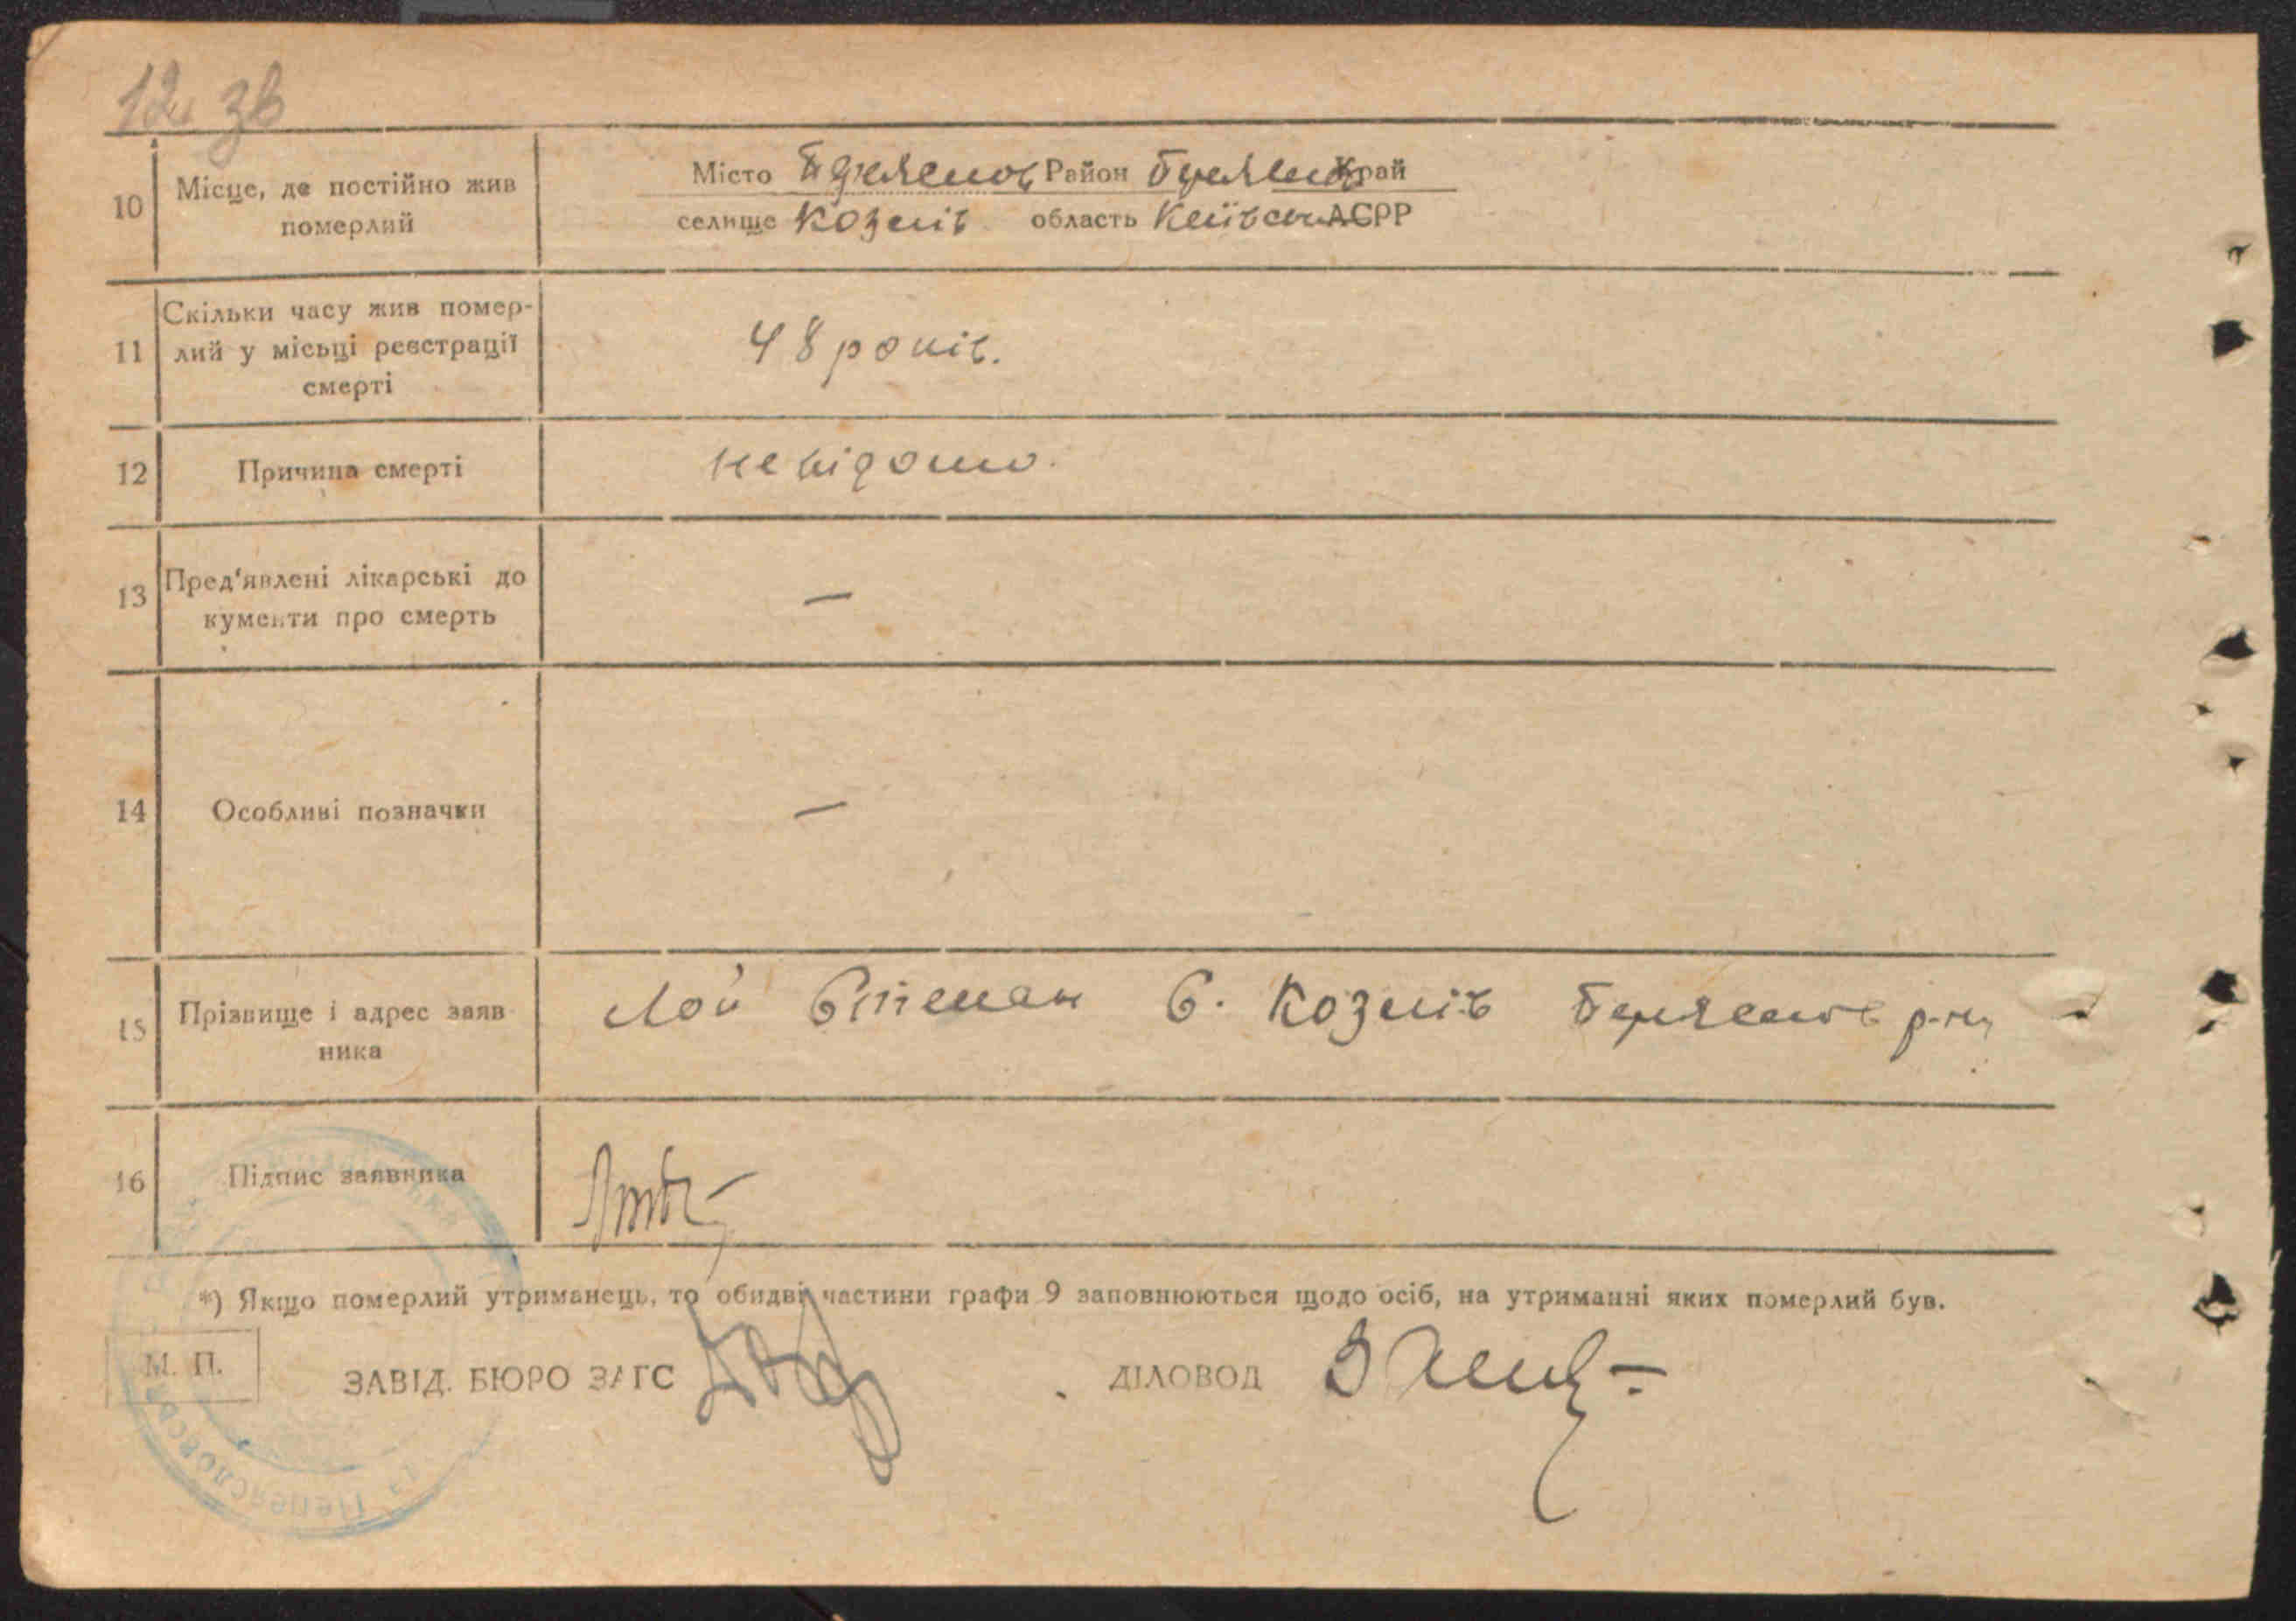 12 зв
10 Місце, де постійно жив померлий
Місто Район край
селище Козлів область Київськ АСРР
11 Скільки часу жив помер-
лий у місьці реєстрації
смерті
48 років.
12 Причина смерті невідомо.
13 Пред'явлені лікарські до
кументи про смерть
—
14 Особливі позначки —
15 Прізвище і адрес заяв
ника
Лой Степан С. Козлів р-ну
16 Підпис заявника
*) Якщо померлий утриманець, то обидві частини графи 9 заповнюються щодо осіб, на утриманні яких померлий був.
М. П.
ЗАВІД. БЮРО ЗАГС ДІЛОВОД